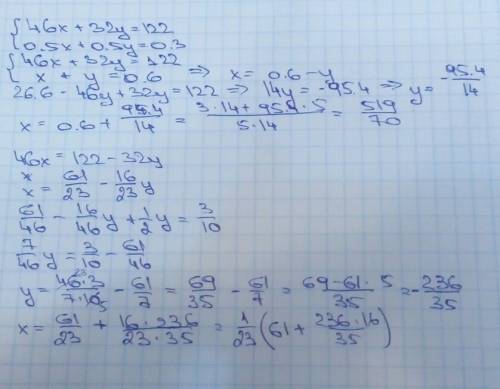 {46x + 32y = 122
{0.5x + 0.5y = 0.3
{46x + 32y = 122
{x + y = 0.6 ⇒ x = 0.6 - y
26.6 - 46y + 32y = 122 ⇒ 14y = -95.4 ⇒ y = -95.4/14
x = 0.6 + 95.4/14 = (3·14 + 95.4·5)/(5·14) = 519/70
46x = 122 - 32y
x = 61/23 - 16/23 y
61/46 - 16/46 y + 1/2 y = 3/10
7/46 y = 3/10 - 61/46
y = 46·3/7·10 - 61/7 = 69/35 - 61/7 = (69 - 61·5)/35 = -236/35
x = 61/23 + (16·236)/(23·35) = 1/23 (61 + 236·16/35)